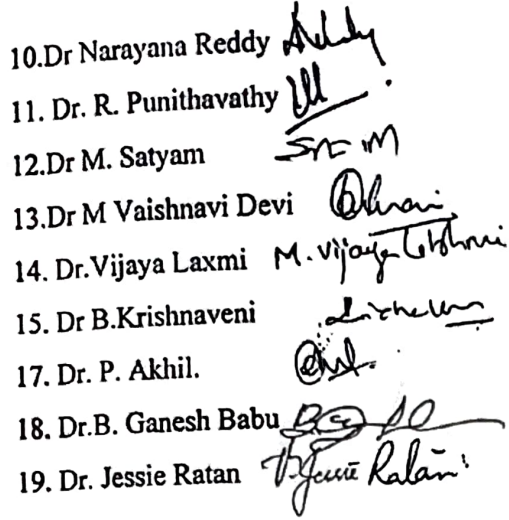 10.Dr Narayana Reddy Reddy
11. Dr. R. Punithavathy
12.Dr M. Satyam
13.Dr M Vaishnavi Devi
14. Dr.Vijaya Laxmi M. Vijaya
15. Dr B.Krishnaveni
17. Dr. P. Akhil.
18. Dr.B. Ganesh Babu
19. Dr. Jessie Ratan Ratan